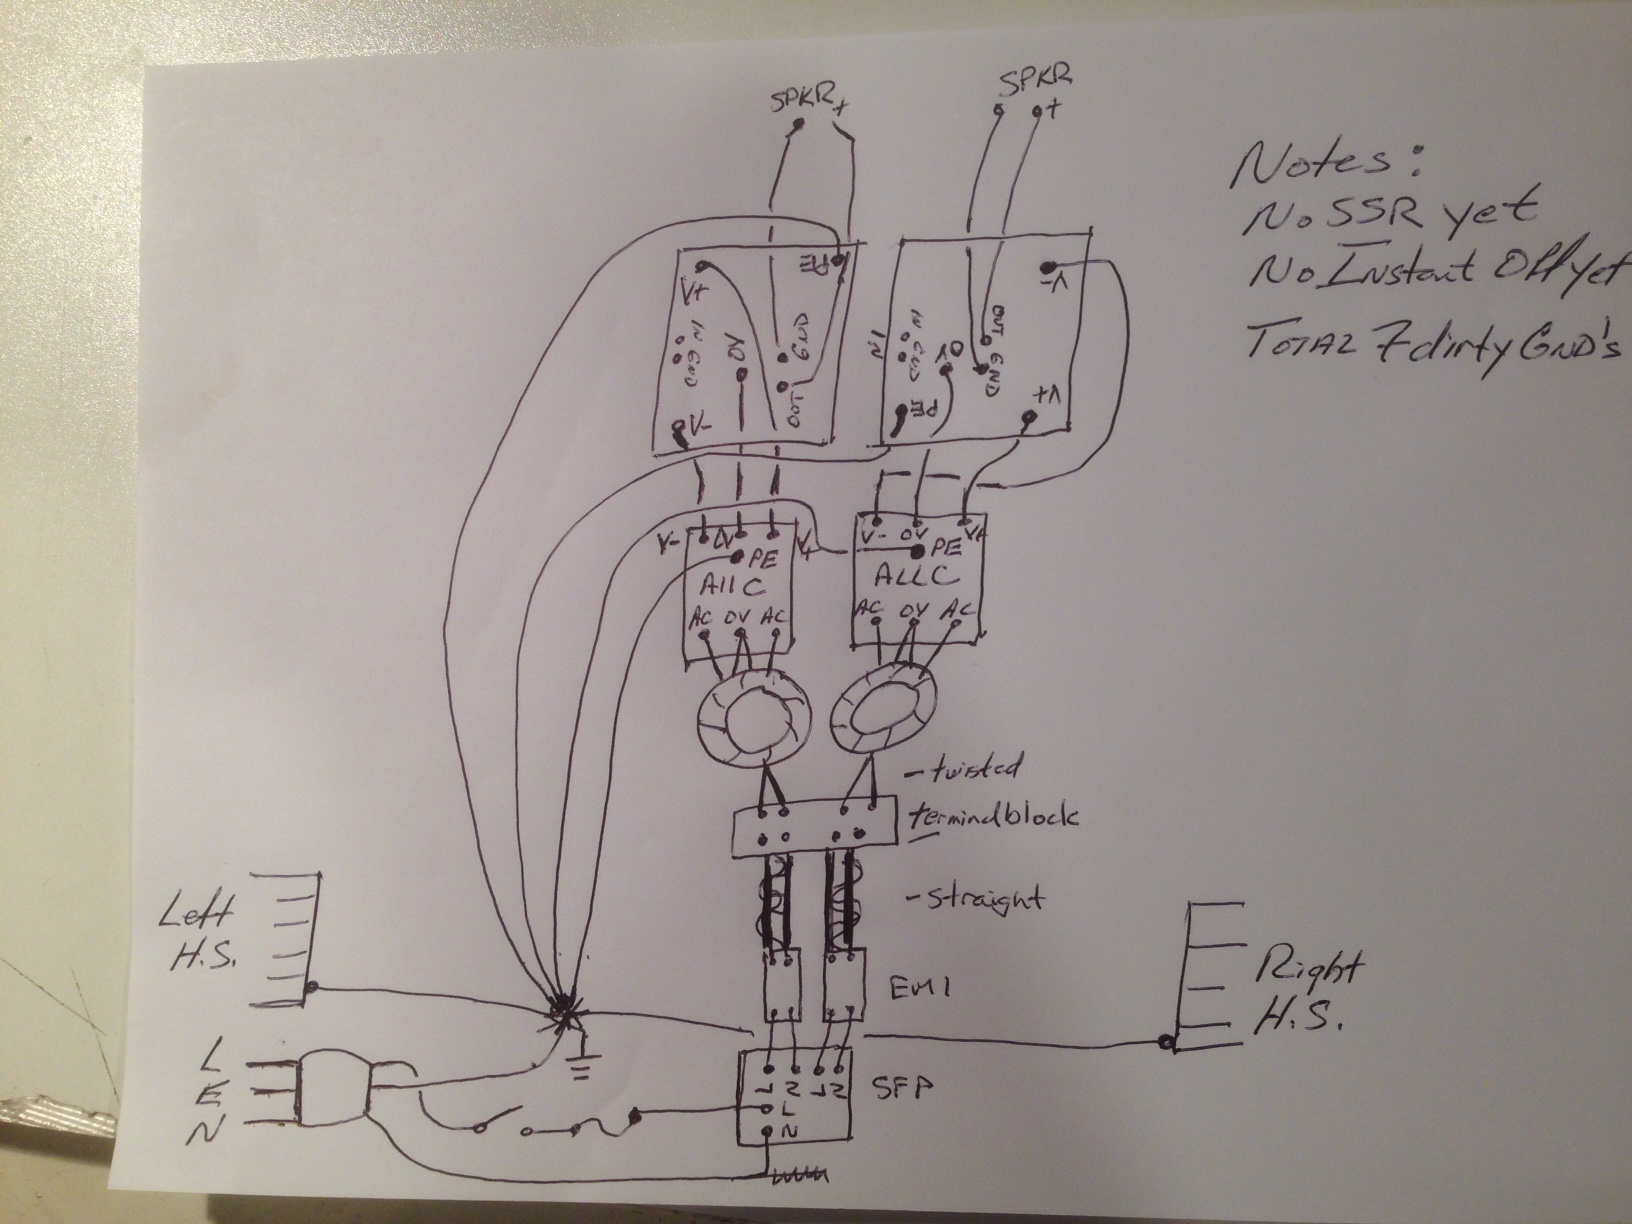 SPKR
+
SPKR
+
Notes:
No SSR yet
No Instant Off yet
TOTAL 7 dirty GND's
V+
PE
IN
GND
0V
GND
OUT
V-
V-
IN
GND
0V
OUT
GND
PE
V+
V- 0V V+
PE
AllC
AC 0V AC
V- 0V V+
PE
ALLC
AC 0V AC
-twisted
terminal block
-straight
EMI
L N L N
SFP
L
N
Left
H.S.
Right
H.S.
L
E
N